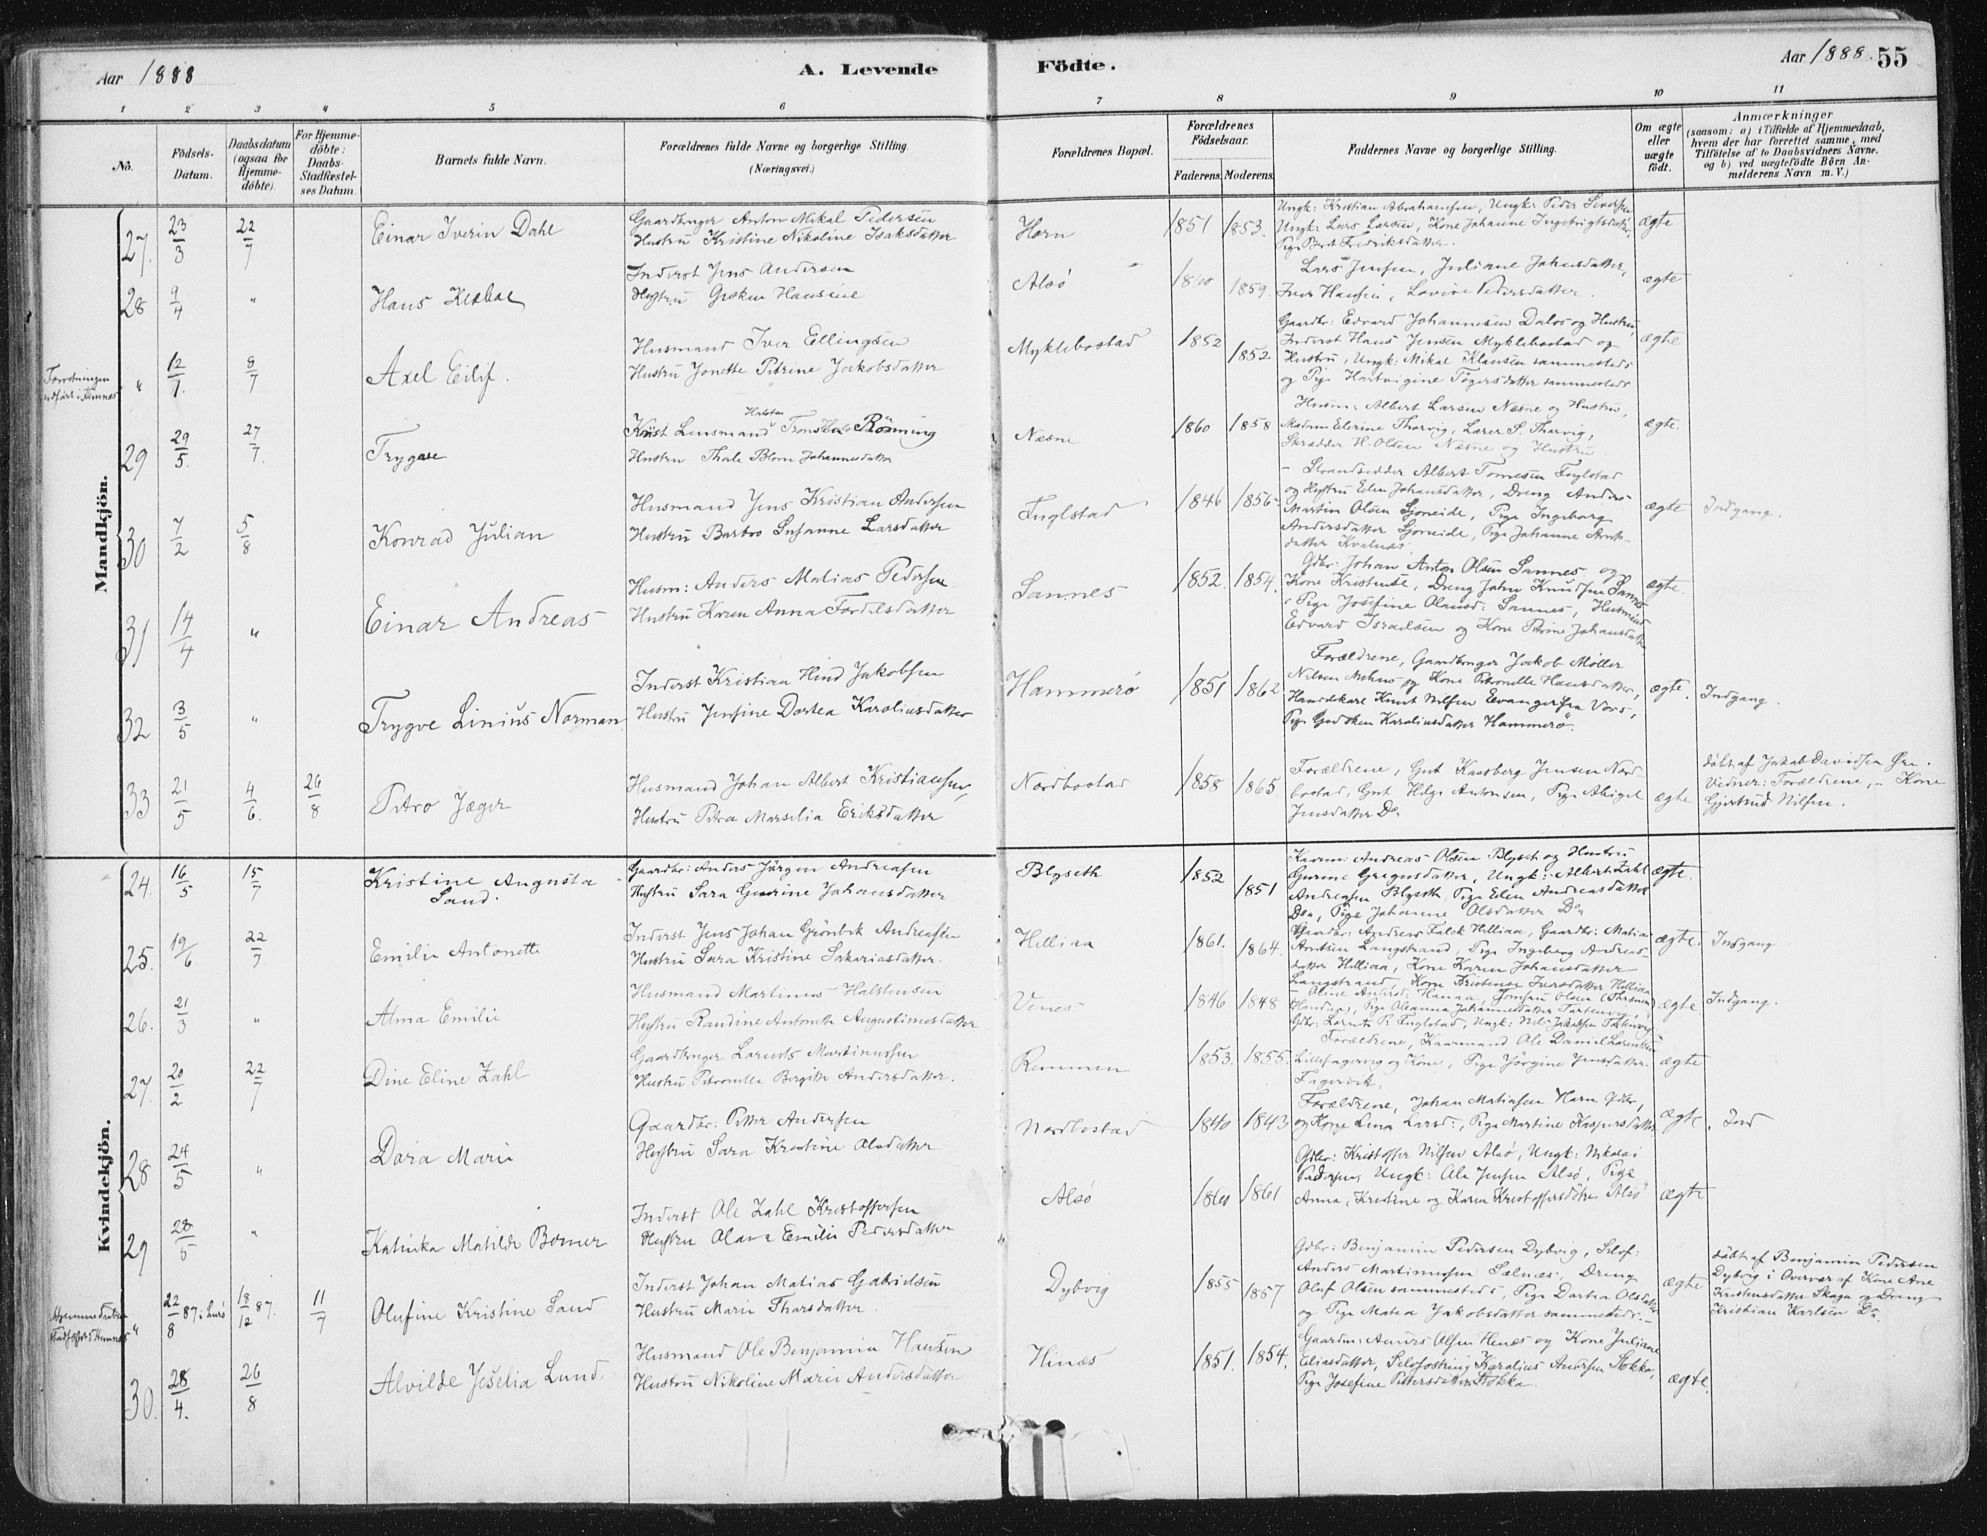 Aar 1888
A. Levende
Födte.
Aar 1888.
55
1 2 3 4 5 6 7 8 9 10 11
No.
Födsels-Datum.
Daabsdatum (ogsaa for Hjemme-döbte).
For Hjemme-döbte: Daabs-Stadfæstel-ses Datum.
Barnets fulde Navn.
Forældrenes fulde Navne og borgerlige Stilling.
(Næringsvei.)
Forældrenes Bopæl.
Forældrenes Födselsaar.
Faderens. Moderens.
Faddernes Navne og borgerlige Stilling.
Om ægte eller uægte födt.
Anmærkninger
(saasom: a) i Tilfælde af Hjemmedaab, hvem der har forrettet samme, med Tilföielse af to Daabsvidners Navne, og b) ved uægtefödte Börn An-melderens Navn m. V.)
Mandkjön.
27. 23/3 22/7 Einar Iverin Dahl
Gaardbruger Anton Mikal Pedersen
Hustru Kristine Nikoline Isaksdatter
Horn 1851 1853.
Ungk: Kristian Abrahamsen, Ungk: Peder Sivertsen
Ungk: Lars Larsen, Kone Johanne Ingebrigtsdatter,
Pige Berit Fredriksdatter.
ægte
28 9/4 " Hans
Inderst Jens Andersen
Hustru Hansine
Alsö 1859.
Lars Jensen, Juliane Johnsdatter,
Iver Hansen, Pedersdatter.
ægte
" 12/1. 8/7 Axel Eilif.
Husmand Iver Ellingsen
Hustru Jonette Petrine Jakobsdatter
Myklebostad 1852 1852.
Gaardbr: Edvard Johannesen Dalos og Hustru,
Inderst Hans Jensen Myklebostad og
Hustru, Ungk: Mikal Klausen sammesteds
og Pige Hartvigine Tögersdatter sammesteds
ægte
29 29/5. 27/7. Trygve
Lensmand Rönning
Hustru Thale Blom Johannesdatter
Næsne 1860 1858
Husm: Albert Larsen Næsne og Hustru,
Madam Elerine Thorvig, Lærer S. Thorvig,
Skrædder H. Olsen Næsne og Hustru
ægte.
30 7/2 5/8 Konrad Julian
Husmand Jens Kristian Andersen
Hustru Barbro Susanne Larsdatter
Fuglstad 1846 1856.
Strandsidder Albert Tomesen Fuglstad
og Hustru Elen Johansdatter, Dreng Anders
Martin Olsen Sjoneide, Pige Ingeborg
Andersdatter Sjoneide, Pige Johanne
datter Kvalnes
ægte Indgang.
31 14/4 " Einar Andreas
Husm: Anders Matias Pedersen
Hustru Karen Anna Fordelsdatter
Sannes 1852. 1854.
Gdbr: Johan Anton Olsen Sannes og
Kone Kristense, Dreng Johan Sannes
Pige Josefine Olausd: Sannes, Husmand
Edvard Israelsen og Kone Petrine Johansdatter
ægte.
32 3/5 " Trygve Linius Norman
Inderst Kristian Hind Jakobsen
Hustru Jensine Dortea Karoliusdatter
Hammerö 1851 1862
Forældrene, Gaardbruger Jakob Möller
Nilsen og Kone Petronelle Hansdatter,
Handelskar Knut Nilsen Vors,
Pige Gudsken Karoliusdatter Hammerö.
ægte. Indgang.
33 21/5 4/6. 26/8 Petro Jæger
Husmand Johan Albert Kristiansen,
Hustru Petra Marselia Eriksdatter
Nordbostad 1858 1865
Forældrene, Gut Kaasberg Jensen Nord
bostad, Gut Helge Antonsen, Pige Abigel
Jensdatter Do
ægte
döbt af Jakob Davidsen
Vidner: Forældrene, - Kone
Gjertrud Nilsen.
Kvindekjön.
24. 16/5 15/7 Kristine Augusta
Sand.
Gaardbr: Anders Jörgen Andreasen
Hustru Sara Gurine Johansdatter
Blyseth 1852 1851
Andreas Olsen Blyset og Hustru
Gurine Gregusdatter, Ungk: Albert Zahl
Andreasen Blyseth, Pige Elen Andreasdatter
Do, Pige Johanne Olsdatter Do
ægte.
25. 19/6 22/7. Emilie Antonette
Inderst Jens Johan Grönbek Andreasen
Hustru Sara Kristine Sakariasdatter.
Helliaa 1861. 1864.
Gaardbr: Andreas Falck Helliaa, Gaardbr: Matias
Arntsen Langstrand, Pige Ingeborg Andreas
datter Helliaa, Kone Karen Johansdatter
Langstrand, Kone Kristense Iversdatter Helliaa
ægte. Indgang
26. 21/3 " Alma Emilie
Husmand Martinus Halstensen
Hustru Randine Antonette Augustinusdatter
Venes 1846 1848
Pige Oleanna Johannesdatter
Gdbr: Lorents P. Fuglstad, Ungk: Nils Jakobsen
ægte Indgang.
27. 20/2 22/7 Dine Eline Zahl
Gaardbruger Lorents Martinussen
Hustru Petronelle Bergitte Andersdatter.
Remmen 1853. 1855.
Forældrene, Kaarmand Ole Daniel Lorentsen
Lillefagervig og Kone, Pige Jörgine Jensdatter
Fagervik.
ægte
28 24/5 " Dora Marie
Gaardbr: Petter Andersen
Hustru Sara Kristine Olsdatter
Nordbostad 1840 1843
Forældrene, Johan Matiassen Horn Gdbr,
og Kone Lina Larsd:, Pige Martine Kaspersdatter
ægte. Ind
29 28/5 " Katinka Matilde Bomer
Inderst Ole Zahl Kristoffersen
Hustru Olava Emilie Pedersdatter
Alsö 1860 1861
Gdbr: Kristoffer Nilsen Alsö, Ungk: Nikolai
Pedersen, Ungk: Ole Jensen Alsö, Pige
Anna, Kristine og Karen Kristoffersdötre Alsö
ægte
" 22/8 87 i Lurö 18/12 87. 11/7 Olufine Kristine Sand
Inderst Johan Matias Gabrielsen
Hustru Marie Thorsdatter
Dybvig 1855 1857
Gdbr: Benjamin Pedersen Dybvig, Selvf:
Anders Martinussen Selnæs. Dreng
Oluf Olsen sammesteds, Pige Dortea Olsdatter
og Pige Matea Jakobsdatter sammesteds.
ægte
döbt af Benjamin Pedersen
Dybvig i Overvær af Kone Ane
Kristensdatter Skaga og Dreng
Kristian Karlsen Do.
30. 28/4. 26/8 Alvilde Jeselia Lund.
Husmand Ole Benjamin Hansen
Hustru Nikoline Marie Andersdatter
Hinæs 1851. 1854.
Gaardm: Anders Olsen Henæs og Kone Juliane
Eliasdatter, Selvfostring Karolius Andersen Stokka,
Pige Josefine Pettersdatter Stokka.
ægte.